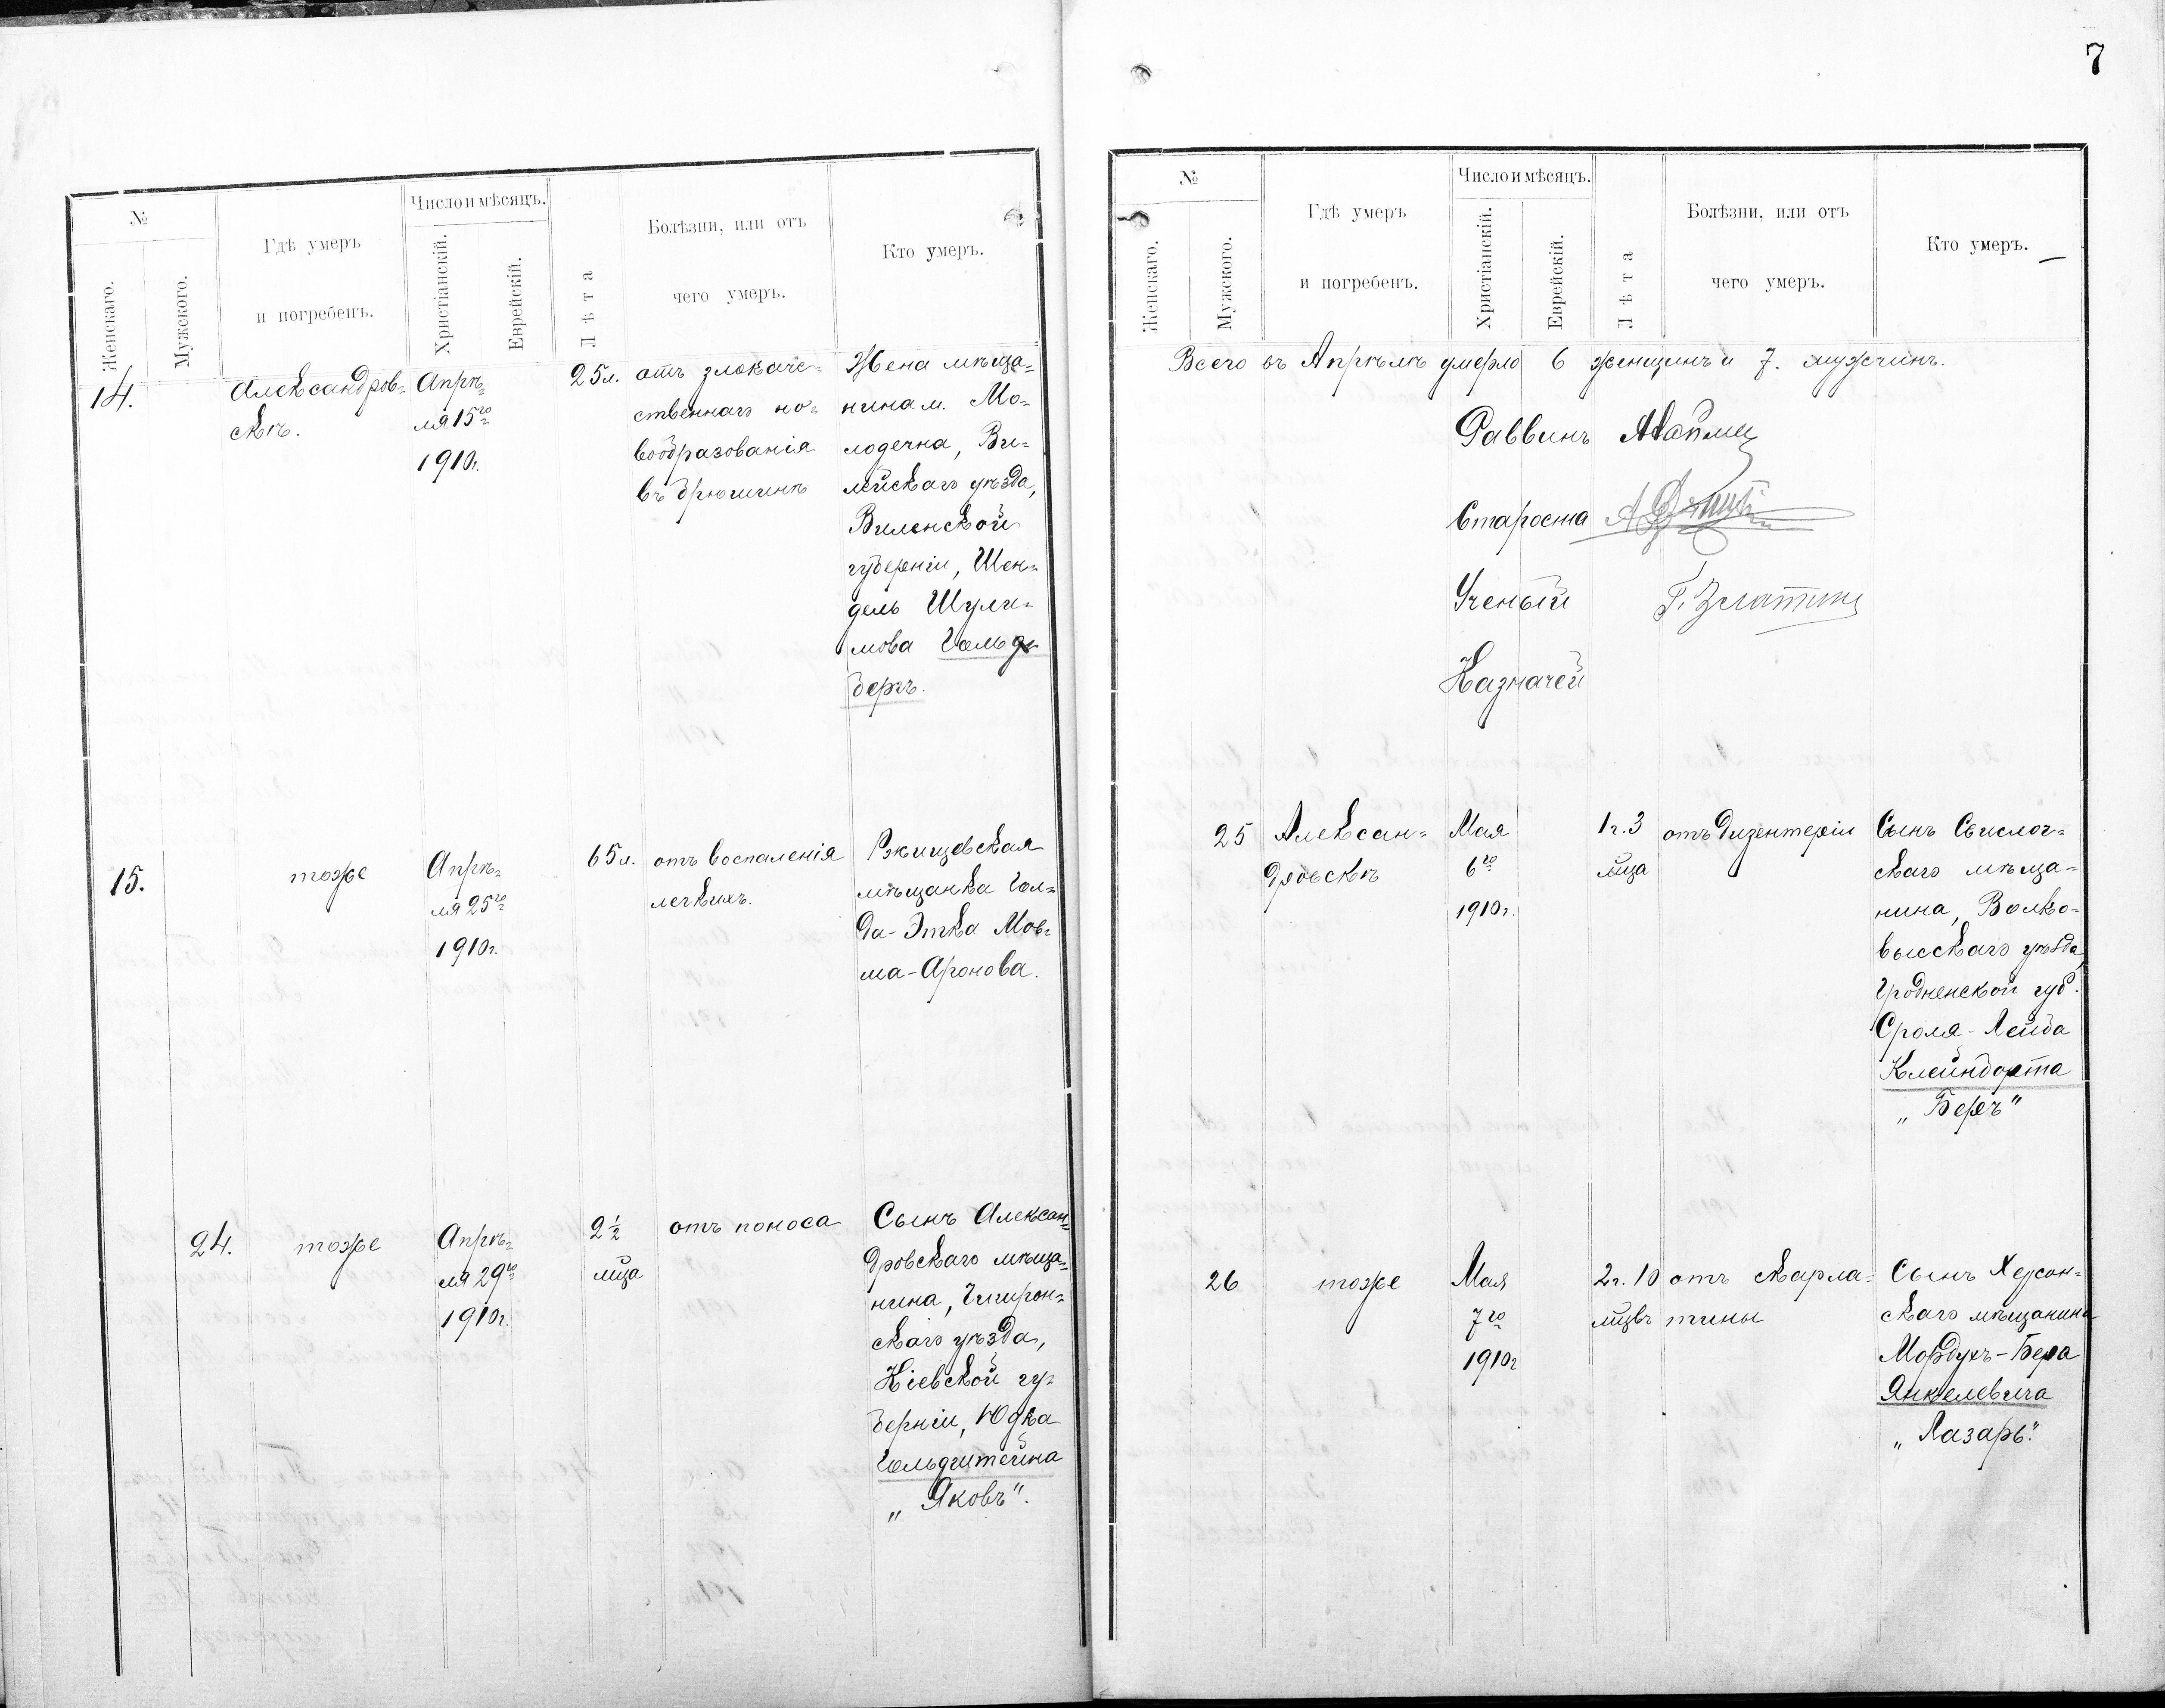 7
№
Женскаго.
Мужского.
Гдѣ умеръ
и погребенъ.
Число и мѣсяцъ.
Христіанскій.
Еврейскій.
Лѣта
Болѣзни, или отъ
чего умеръ.
Кто умеръ.
14.
Александров-
скъ.
Апрѣ-
ля 15го
1910г.
25л.
отъ злокаче-
ственнаго но-
вообразованія
въ брюшинѣ
Жена мѣща-
нина м. Мо-
лодечна, Ви-
лейскаго уѣзда,
Виленской
губерніи, Шен-
дель Шули-
мова Гольд-
бергъ.
15.
тоже
Апрѣ-
ля 25го
1910г.
65л.
отъ воспаленія
легкихъ.
Ржищевская
мѣщанка Гол-
да-Этка Мов-
ша-Аронова.
24.
тоже
Апрѣ-
ля 29го
1910г.
2½
мѣца
отъ поноса
Сынъ Алексан-
дровскаго мѣща-
нина, Чигирин-
скаго уѣзда,
Кіевской гу-
берніи, Юдка
Гольдштейна
„Яковъ".
№
Женскаго.
Мужского.
Гдѣ умеръ
и погребенъ.
Число и мѣсяцъ.
Христіанскій.
Еврейскій.
Лѣта
Болѣзни, или отъ
чего умеръ.
Кто умеръ.
Всего въ Апрѣлѣ умерло 6 женщинъ и 7. мужчинъ.
Раввинъ
Староста
Ученый Г. Златкинъ
Казначей
25
Алексан-
дровскъ
Мая
6го
1910г.
1г. 3
мѣца
отъ дизентеріи
Сынъ Свислоч-
скаго мѣща-
нина, Волко-
высскаго уѣзда,
Гродненской губ.
Сроля-Лейба
Клейндорта
„Беръ"
26
тоже
Мая
7го
1910г
2г. 10
мѣцвъ
отъ скарла-
тины
Сынъ Херсон-
скаго мѣщанина
Мордухъ-Бера
Янкелевича
„Лазарь".